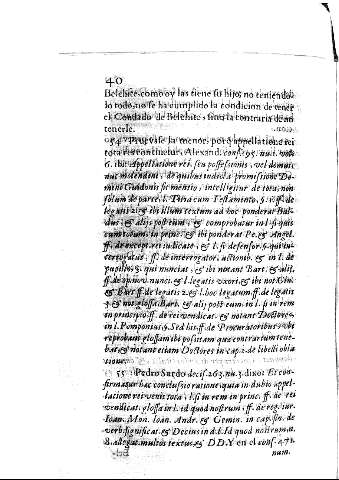 40
Belchite, como oy las tiene su hijo, no teniendo-
lo todo, no se ha cumplido la condicion de tener
el Condado de Belchite, sino la contraria de no
tenerle.
54 Pruevase la menor, porq̃ appellatione rei
tota res continetur, Alexand. cons. 195. nu.
6. ibi: Appellatione rei, seu possessionis, vel
molendini, de quibus indicta promissione Do-
mini Guidonis fit mentio, intelligitur de tota, non
solùm de parte. l. Titia cum Testamento, §. ff. de
legatis 2. & ibi illum textum ad hoc ponderat Bal-
dus, & alij post eum, & comprobatur in l. si quis
& ibi ponderat Pe. & Angel.
ff. de except. rei iudicatæ, & l. si defensor, §. qui in-
terrogatur, ff. de interrogator. actionib. & in l. de
pupillo, §. qui nunciat, & ibi notant Bart. & alij,
ff. de operis noui nunc. & l. legatis vxori, & ibi not.
& Bart. ff. de legatis 2. & l. hoc legatum ff. de legatis
3. & not. glossa Bart. & alij post eum in l. si in rem
in principio ff. de rei vendicat. & notant Doctores
in l. Pomponius, §. Sed his ff. de Procuratoribus, vbi
reprobant glossam ibi positam que contrarium tene-
bat, & notant etiam Doctores in cap. 2. de libelli obla-
tione.
55 Pedro Surdo decis. 263. nu. 3. dixo: Et con-
firmatur hæc conclusio ratione, quia in dubio appel-
latione rei venit tota l. si in rem in princ. ff. de rei
vendicat. glossa in l. id quod nostrum, ff. de reg. iur.
Ioan. Mon. Ioan. Andr. & Gemin. in cap. sin. de
verb. significat. & Decius in d. l. Id quod nostrum, n.
8. adegat multos textus, & DD. Y en el cons. 471.
num.